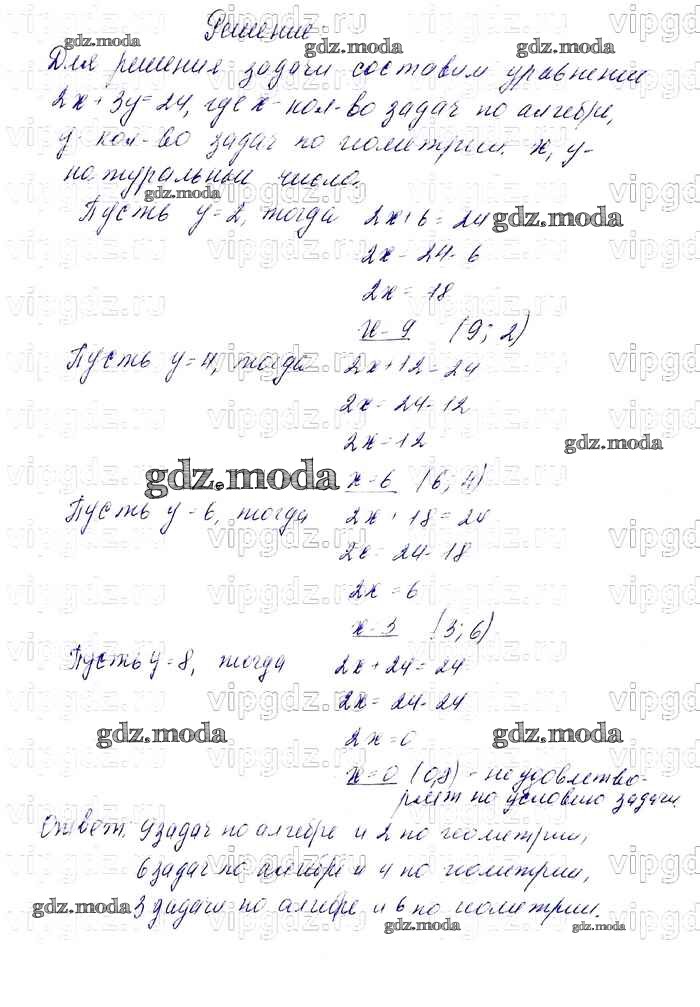 Решение
Для решения задачи составим уравнение
2x+3y=24, где x- кол-во задач по алгебре,
y- кол-во задач по геометрии. x, y-
натуральные числа.
Пусть y=2, тогда 2x+6=24
2x=24-6
2x=18
x=9 (9; 2)
Пусть y=4, тогда 2x+12=24
2x=24-12
2x=12
x=6 (6; 4)
Пусть y=6, тогда 2x+18=24
2x=24-18
2x=6
x=3 (3; 6)
Пусть y=8, тогда 2x+24=24
2x=24-24
2x=0
x=0 (0,8) - не удовлетво-
ряет по условию задачи.
Ответ: 9 задач по алгебре и 2 по геометрии,
6 задач по алгебре и 4 по геометрии,
3 задачи по алгебре и 6 по геометрии.
gdz.moda
vipgdz.ru